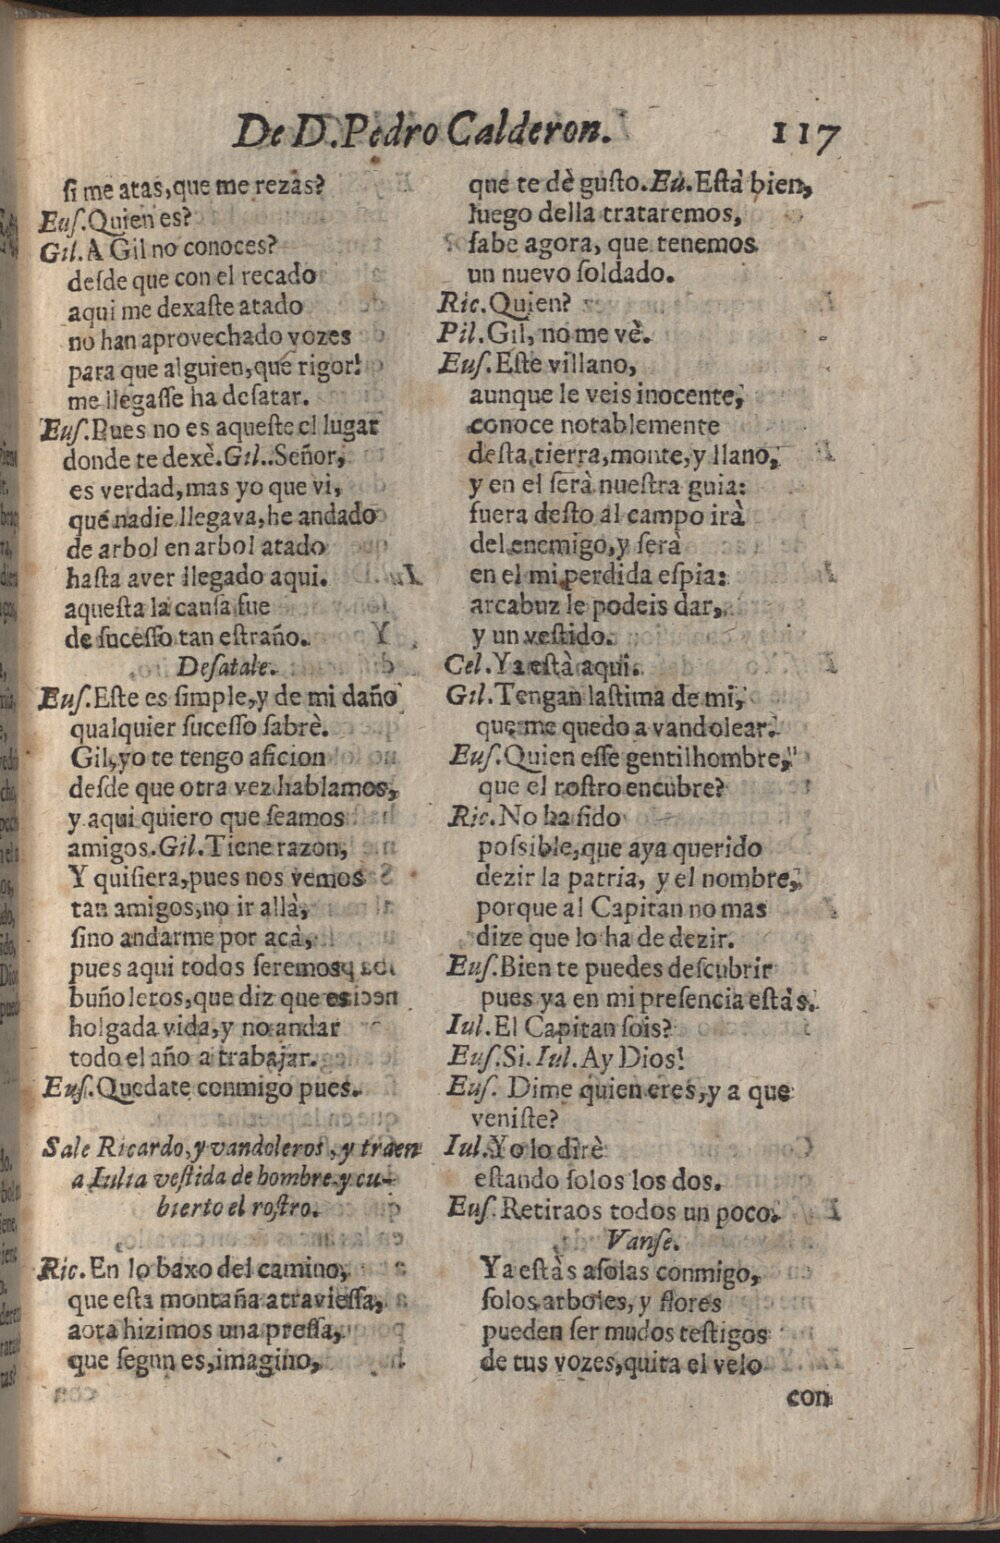 De D. Pedro Calderon. 117
si me atas, que me rezas?
Eus. Quien es?
Gil. A Gil no conoces?
desde que con el recado
aqui me dexaste atado
no han aprovechado vozes
para que alguien, què rigor!
me llegasse ha desatar.
Eus. Pues no es aqueste el lugar
donde te dexè. Gil.. Señor,
es verdad, mas yo que vi,
què nadie llegava, he andado
de arbol en arbol atado
hasta aver llegado aqui.
aquesta la causa fue
de sucesso tan estraño.
Desatale.
Eus. Este es simple, y de mi daño
qualquier sucesso sabrè.
Gil, yo te tengo aficion
desde que otra vez hablamos,
y aqui quiero que seamos
amigos. Gil. Tiene razon,
Y quisiera, pues nos vemos
tan amigos, no ir allà,
sino andarme por acà,
pues aqui todos seremos
buñoleros, que diz que es
holgada vida, y no andar
todo el año a trabajar.
Eus. Quedate conmigo pues.
Sale Ricardo, y vandoleros, y traen
a Iulia vestida de hombre y cu-
bierto el rostro.
Ric. En lo baxo del camino,
que esta montaña atraviessa,
aora hizimos una pressa,
que segun es, imagino,
que te dè gusto. Eu. Està bien,
luego della trataremos,
sabe agora, que tenemos
un nuevo soldado.
Ric. Quien?
Pil. Gil, no me vè.
Eus. Este villano,
aunque le veis inocente,
conoce notablemente
desta tierra, monte, y llano,
y en el serà nuestra guia:
fuera desto al campo irà
del enemigo, y serà
en el mi perdida espia:
arcabuz le podeis dar,
y un vestido.
Cel. Ya està aqui.
Gil. Tengan lastima de mi,
que me quedo a vandolear.
Eus. Quien esse gentilhombre,
que el rostro encubre?
Ric. No ha sido
possible, que aya querido
dezir la patria, y el nombre,
porque al Capitan no mas
dize que lo ha de dezir.
Eus. Bien te puedes descubrir
pues ya en mi presencia estàs.
Iul. El Capitan sois?
Eus. Si. Iul. Ay Dios!
Eus. Dime quien eres, y a que
veniste?
Iul. Yo lo dirè
estando solos los dos.
Eus. Retiraos todos un poco.
Vanse.
Ya estàs asolas conmigo,
solos arboles, y flores
pueden ser mudos testigos
de tus vozes, quita el velo
con